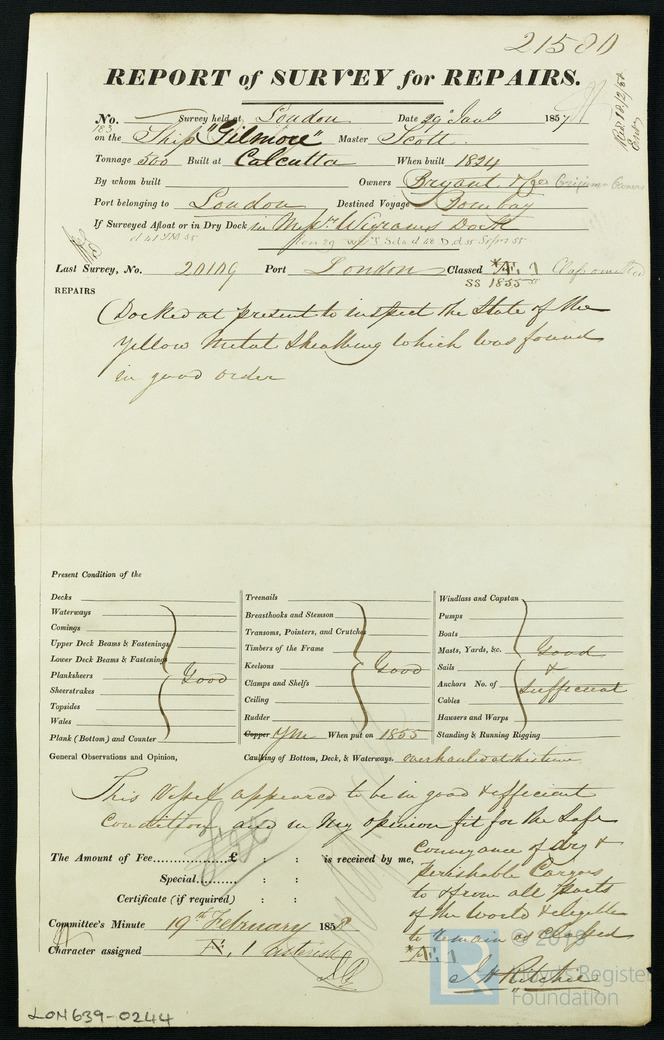 21580
REPORT of SURVEY for REPAIRS.
No. Survey held at London Date 29th Jany 1857
183
on the Ship "Gilmore" Master Scott
Tonnage 500 Built at Calcutta When built 1824
By whom built Owners Bryant
Port belonging to London Destined Voyage Bombay
If Surveyed Afloat or in Dry Dock in Messrs Wigrams Dock
Last Survey, No. 20109 Port London Classed *Æ. 1
SS 1855
REPAIRS
Docked at present to inspect the State of the
Yellow Metal Sheathing which was found
in good order
Present Condition of the
Decks
Waterways
Comings
Upper Deck Beams & Fastenings
Lower Deck Beams & Fastenings
Planksheers Good
Sheerstrakes
Topsides
Wales
Plank (Bottom) and Counter
Treenails
Breasthooks and Stemson
Transoms, Pointers, and Crutches
Timbers of the Frame
Keelsons Good
Clamps and Shelfs
Ceiling
Rudder
Copper YM When put on 1855
Windlass and Capstan
Pumps
Boats
Masts, Yards, &c. Good
Sails &
Anchors No. of sufficient
Cables
Hawsers and Warps
Standing & Running Rigging
General Observations and Opinion, Caulking of Bottom, Deck, & Waterways. overhauled at this time
This Vessel appeared to be in good & efficient
Condition and in my opinion fit for the Safe
Conveyance of dry &
perishable Cargoes
to & from all parts
of the World & eligible
to remain as Classed
*Æ. 1
The Amount of Fee £ : : is received by me,
Special : :
Certificate (if required) : :
J H Ritchie
Committee's Minute 19th February 1858
Character assigned Æ. 1
© 2019
Lloyd's Register
Foundation
LR
LON639-0244